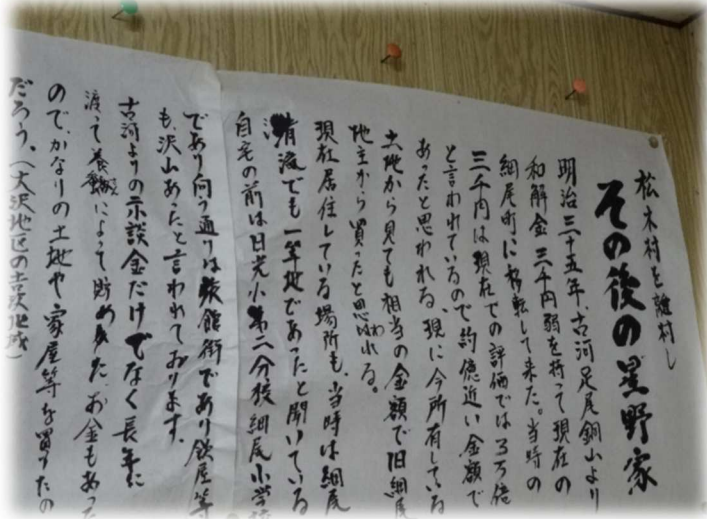 松木村を離村し
その後の星野家
明治三十五年、古河足尾銅山より
和解金三千円弱を持って現在の
細尾町に移転して来た。当時の
三千円は現在での評価では3万倍
と言われているので約億近い金額で
あったと思われる。現に今所有している
土地から見ても相当の金額で旧細尾
地主から買ったと思われる。
現在居住している場所も、当時は細尾
清滝でも一等地であったと聞いている
自宅の前は日光小第二分校細尾小学校
であり向う通りは旅館街であり鉄屋等
も沢山あったと言われております。
古河よりの示談金だけでなく長年に
渡って養蚕によって貯めた、お金もあった
ので、かなりの土地や家屋等を買うたの
だろう。(大沢地区の